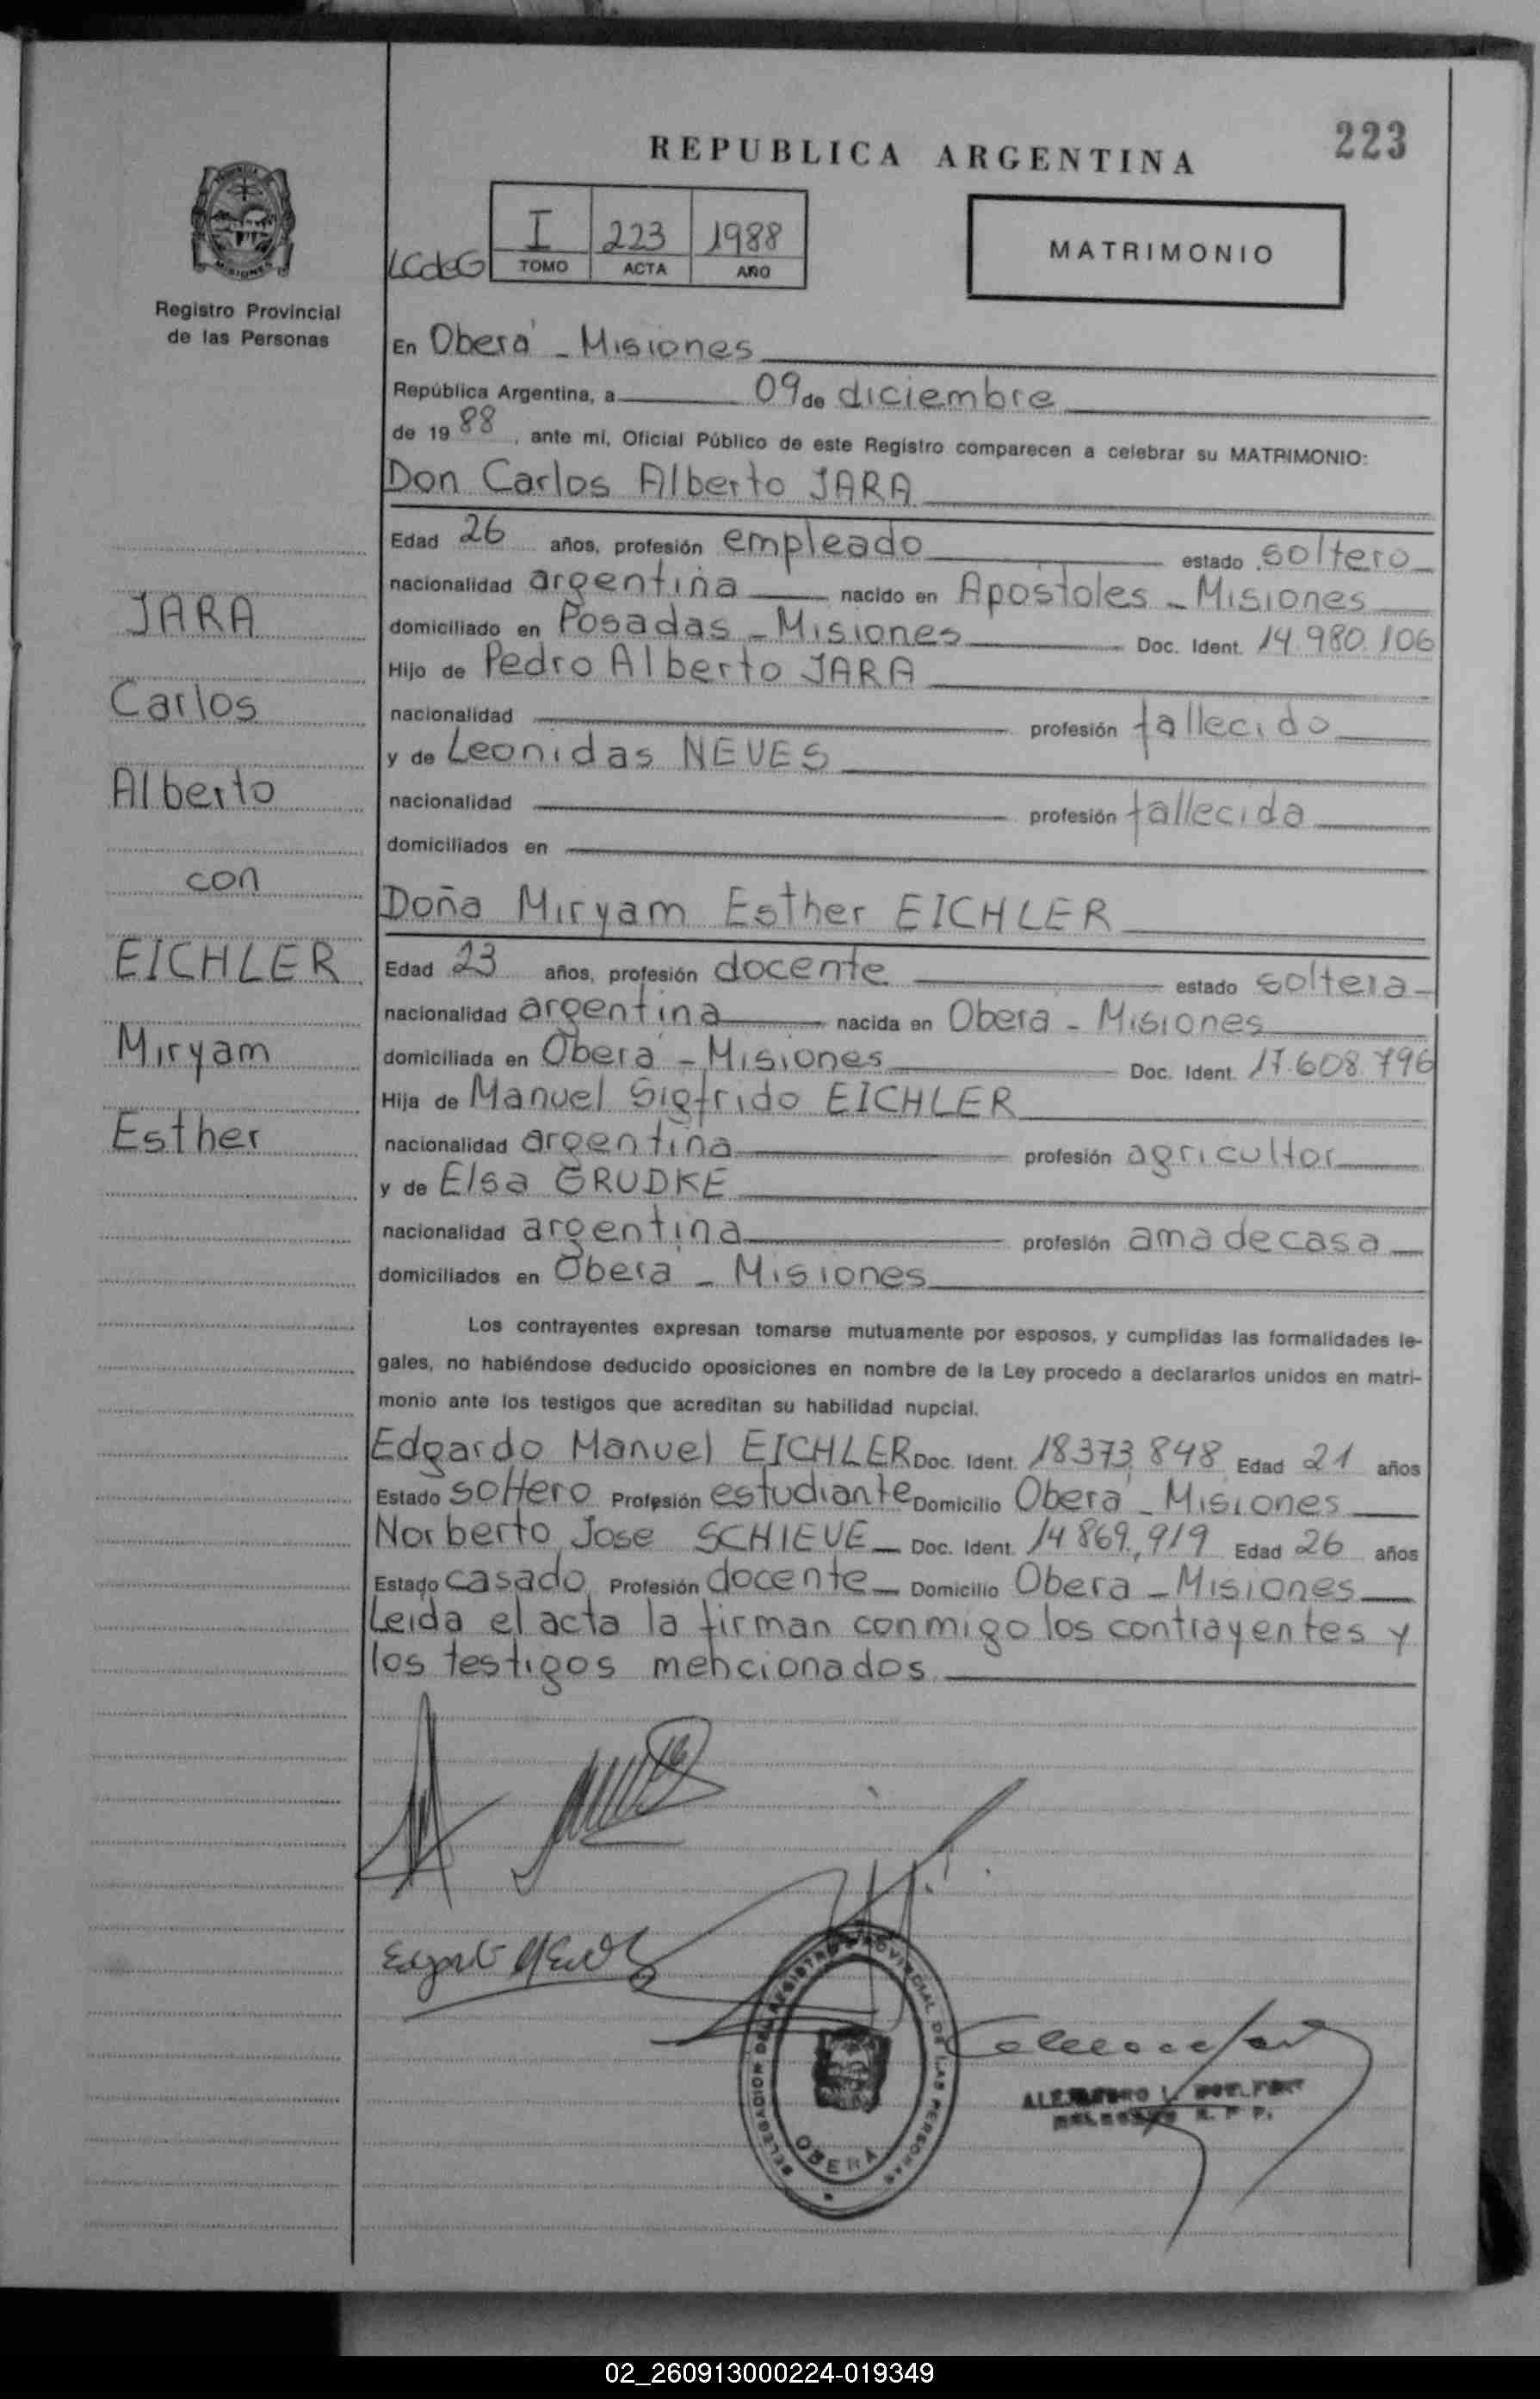 223
REPUBLICA ARGENTINA
I 223 1988
TOMO ACTA AÑO
MATRIMONIO
MISIONES
Registro Provincial
de las Personas
En Oberá - Misiones
República Argentina, a 09 de diciembre
de 19 88, ante mi, Oficial Público de este Registro comparecen a celebrar su MATRIMONIO:
Don Carlos Alberto JARA
Edad 26 años, profesión empleado estado soltero
nacionalidad argentina nacido en Apóstoles - Misiones
domiciliado en Posadas - Misiones Doc. Ident. 14.980.106
Hijo de Pedro Alberto JARA
nacionalidad profesión fallecido
y de Leonidas NEVES
nacionalidad profesión fallecida
domiciliados en
Doña Miryam Esther EICHLER
Edad 23 años, profesión docente estado soltera
nacionalidad argentina nacida en Obera - Misiones
domiciliada en Oberá - Misiones Doc. Ident. 17.608.796
Hija de Manuel Sigfrido EICHLER
nacionalidad argentina profesión agricultor
y de Elsa GRUDKE
nacionalidad argentina profesión ama de casa
domiciliados en Obera - Misiones
JARA
Carlos
Alberto
con
EICHLER
Miryam
Esther
Los contrayentes expresan tomarse mutuamente por esposos, y cumplidas las formalidades le-
gales, no habiéndose deducido oposiciones en nombre de la Ley procedo a declararlos unidos en matri-
monio ante los testigos que acreditan su habilidad nupcial.
Edgardo Manuel EICHLER Doc. Ident. 18.373.848 Edad 21 años
Estado soltero Profesión estudiante Domicilio Oberá - Misiones
Norberto Jose SCHIEVE Doc. Ident. 14.869.919 Edad 26 años
Estado casado Profesión docente Domicilio Obera - Misiones
Leida el acta la firman conmigo los contrayentes y
los testigos mencionados
DELEGACION DEL REGISTRO PROVINCIAL DE LAS PERSONAS
OBERA
R. P. P.
02_260913000224-019349